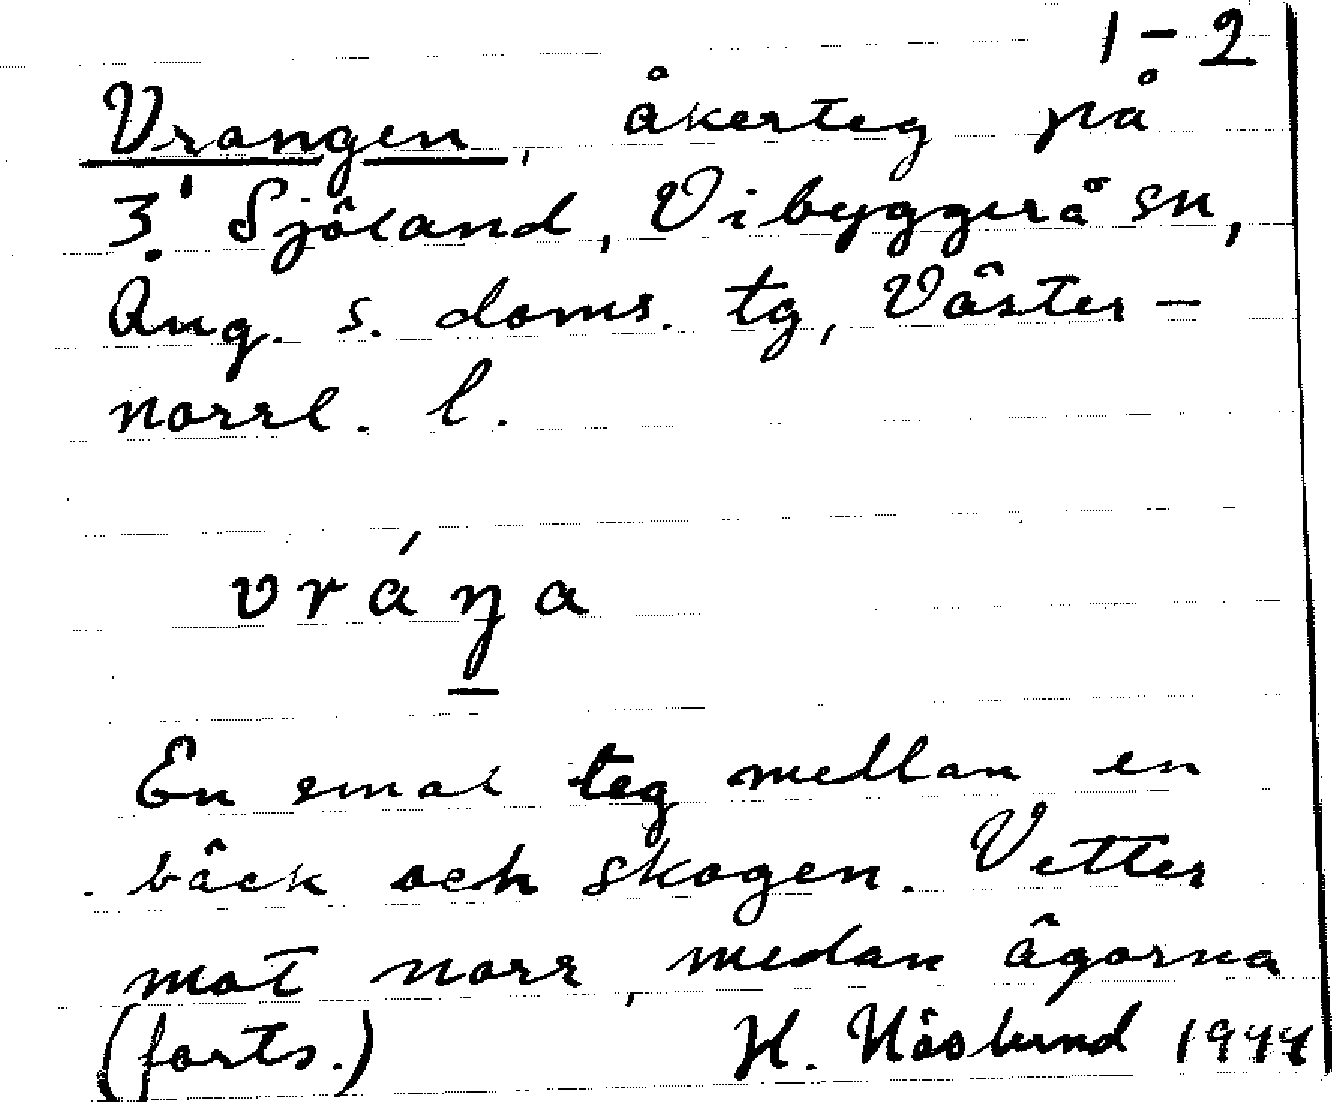 1-2
Vrangen, åkerteg på
3:1 Sjöland, Vibyggerå sn,
Ång. s. doms. tg, Väster-
norrl. l.
vráŋa
En smal teg mellan en
bäck och skogen. Vetter
mot norr, medan ägorna
(forts.) H. Näslund 1944